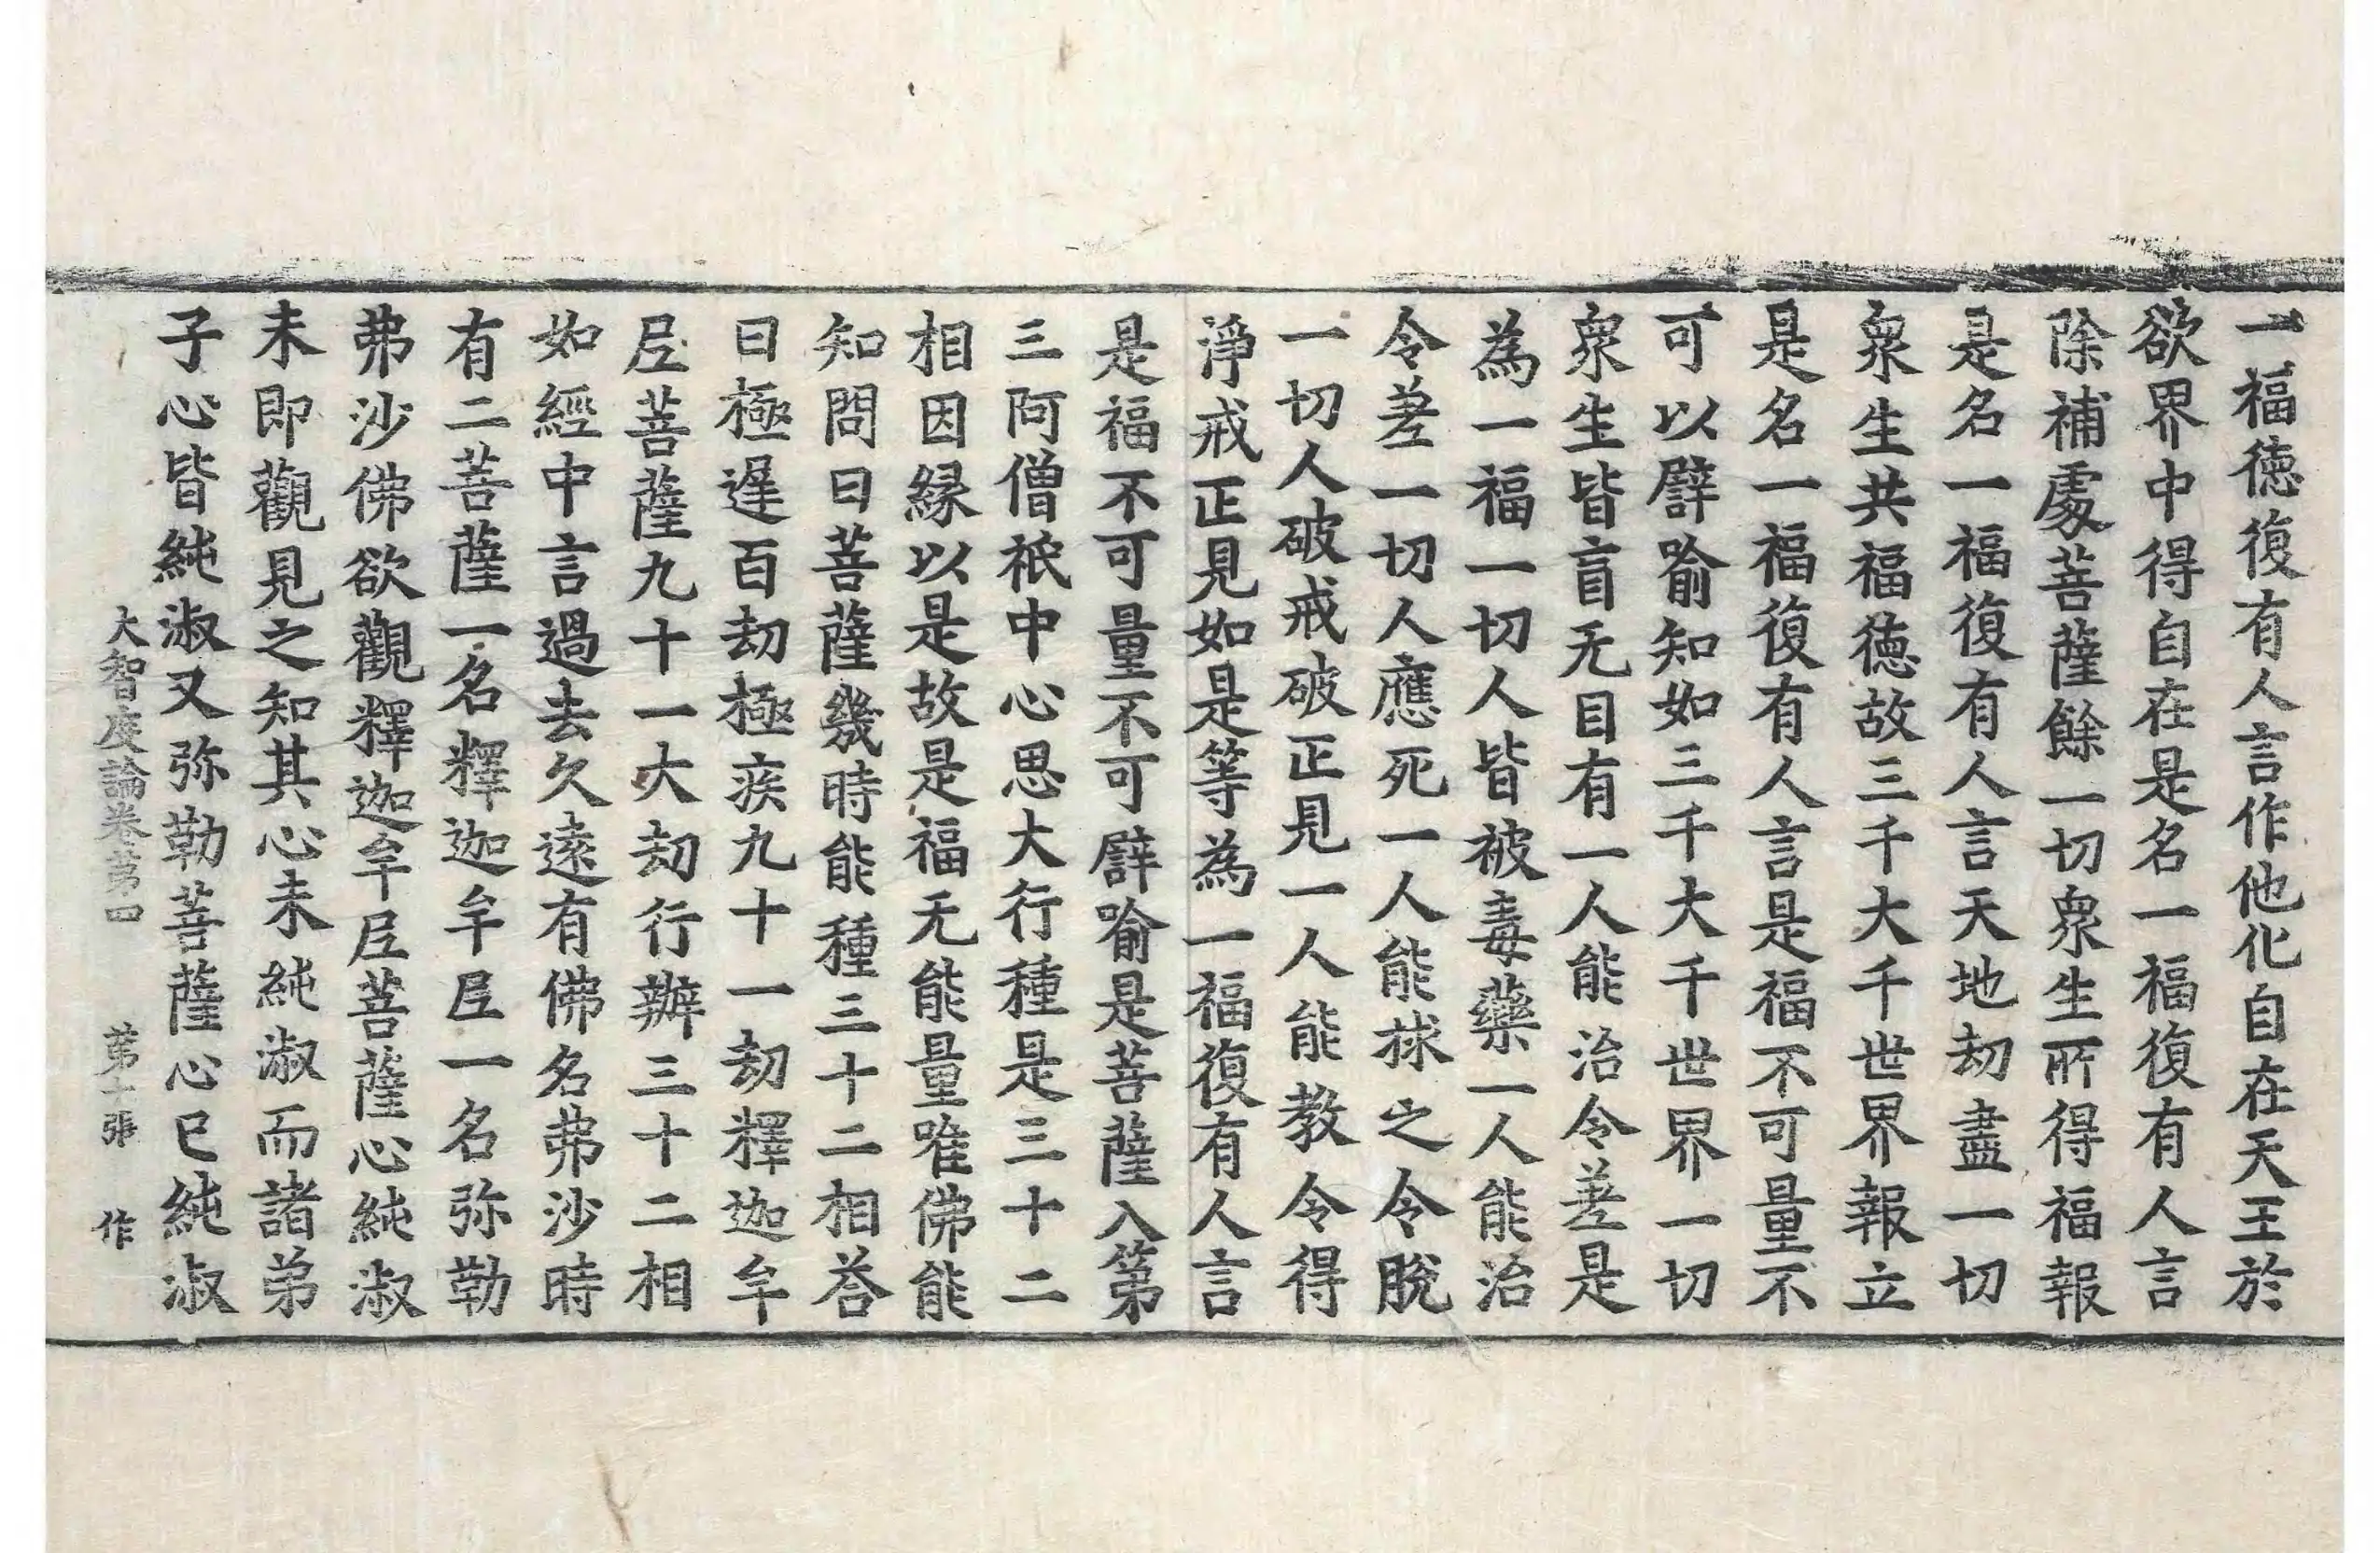 一福德復有人言作他化自在天王於
欲界中得自在是名一福復有人言
除補處菩薩餘一切衆生所得福報
是名一福復有人言天地劫盡一切
衆生共福德故三千大千世界報立
是名一福復有人言是福不可量不
可以譬喻知如三千大千世界一切
衆生皆盲无目有一人能治令差是
為一福一切人皆被毒藥一人能治
令差一切人應死一人能捄之令脫
一切人破戒破正見一人能教令得
淨戒正見如是等為一福復有人言
是福不可量不可譬喻是菩薩入第
三阿僧祇中心思大行種是三十二
相因緣以是故是福无能量唯佛能
知問曰菩薩幾時能種三十二相荅
曰極遲百劫極疾九十一劫釋迦牟
尼菩薩九十一大劫行辦三十二相
如經中言過去久遠有佛名弗沙時
有二菩薩一名釋迦牟尼一名弥勒
弗沙佛欲觀釋迦牟尼菩薩心純淑
未即觀見之知其心未純淑而諸弟
子心皆純淑又弥勒菩薩心已純淑
大智度論卷第四 第十張 作